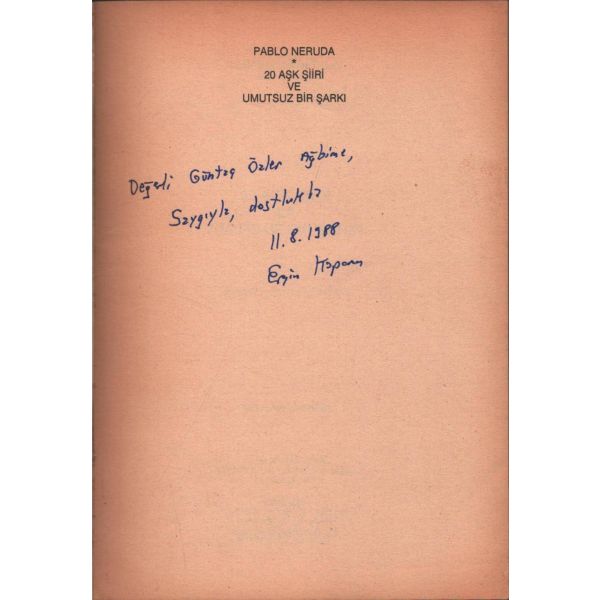 PABLO NERUDA
*
20 AŞK ŞİİRİ
VE
UMUTSUZ BİR ŞARKI
Değerli Güntaç Özler Ağbime,
Saygıyla, dostlukla
11.8.1988
Ergin Koparan